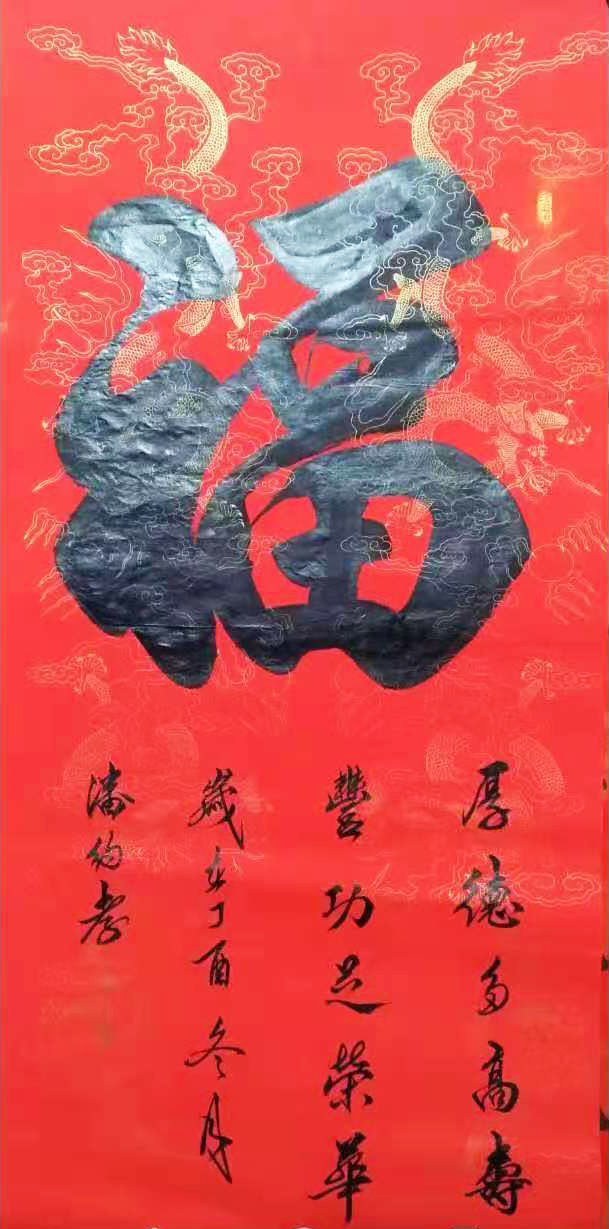 福
厚德多高壽
豐功足榮華
歲在丁酉冬月
潘約孝